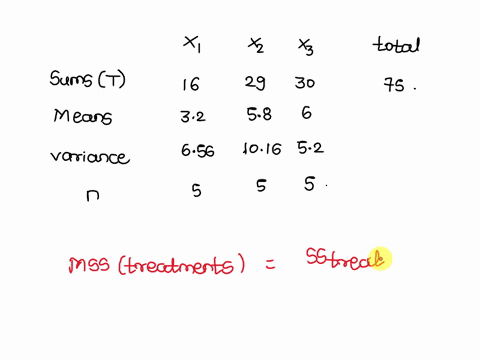 x1 x2 x3 total
Sums (T) 16 29 30 75.
Means 3.2 5.8 6
variance 6.56 10.16 5.2
n 5 5 5.
MSS (treatments) = SStreat